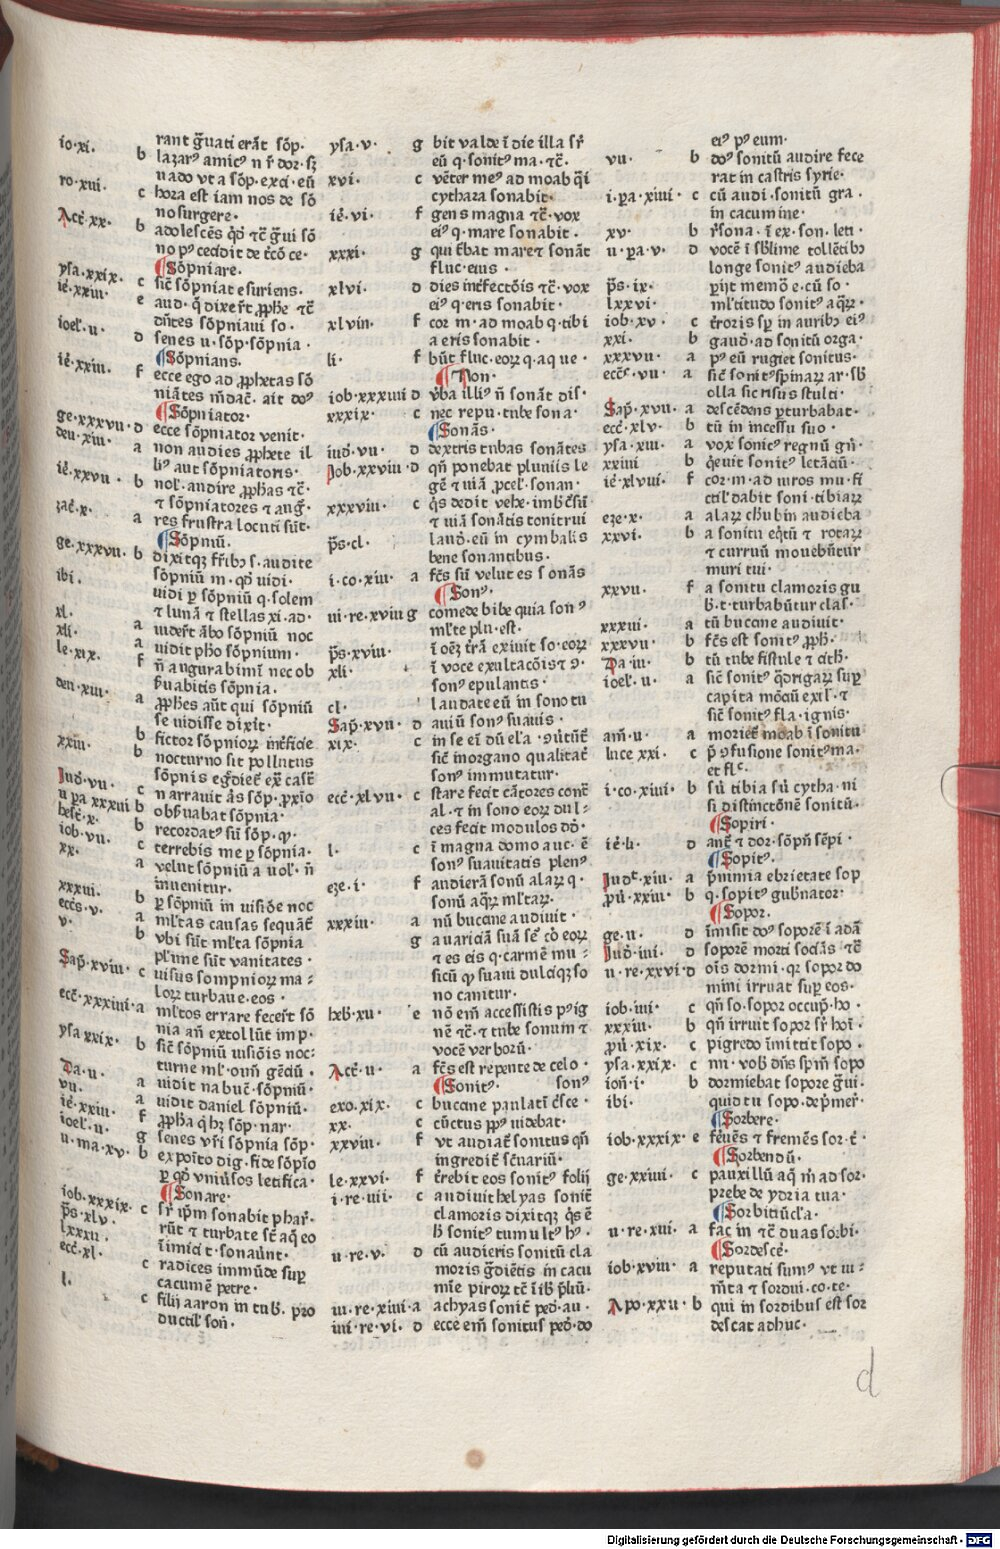 rant g̃uati erãt sõp·
io·xi. b lazarꝰ amicꝰ n r̃ dor·sȝ
uado vt a sõp·exci·eũ
ro·xui. c hora est iam nos de sõ
no surgere·
Act̃·xx· b adolescẽs q̃d tc̃ g̃ui sõ
no pꝰ cecidit de t̃cõ ce·
Sõpniare.
ysa·xxix· c sic̃ sõpniat esuriens·
ie·xxiii· e aud·q̃ dixer̃t ꝓphe tc̃
dñtes sõpniaui so·
ioel·u· d senes u·sõp·sõpnia·
Sõpnians.
ie·xxiii· f ecce ego ad ꝓphetas sõ
niãtes m̃dac̃·ait doꝰ
Sõpniator·
ge·xxxvu·d ecce sõpniator venit·
deu·xiii· a non audies ꝓphete il
liꝰ aut sõpniatoris·
ie·xxvu· b nol·audire ꝓphas tc̃·
t sõpniatores t aug̃·
zac̃·x· a res frustra locuti sũt·
Sõpniũ·
ge·xxxvu·b dixitqȝ fr̃ibꝰ s·audite
sõpniũ m·qd̃ uidi·
ibi. uidi p sõpniũ q·solem
t lunã t stellas xi·ad·
xl. a uider̃t ãbo sõpniũ noc
xli. a uidit pho sõpnium·
le·xix. f ñ augurabimĩ nec ob
ẜuabitis sõpnia·
deu·xiii· a ꝓphes aũt qui sõpniũ
se uidisse dixit·
b fictor sõpnioꝝ int̃ficie
xxiii· b nocturno sit pollutus
sõpnis eg̃diet̃ ex̃ cast̃
Iud̃·vu· c narrauit ãs sõp·ꝓxĩo
u pa xxxui b obẜuabat sõpnia·
hest̃·x. b recordatꝰ sũ sõp·ꝙ·
iob·vu. c terrebis me p sõpnia·
xx. a velut sõpniũ auol·ñ
inuenitur·
xxxui. b p sõpniũ in uisiõe noc
ecc̃s·v· a ml̃tas causas sequãt̃
v· b vbi sũt ml̃ta sõpnia
pl̃ime sũt vanitates·
Sap̃·xviii· c uisus sompnioꝝ ma=
loꝝ turbaue·eos·
ecc̃·xxxiiii·a ml̃tos errare fecer̃t sõ
nia añ extollũt im p·
ysa xxix· b sic̃ sõpniũ uisiõis noc:
turne ml̃·om̃ gẽciũ·
Da·u. a uidit nabuc̃·sõpniũ·
vu. a uidit daniel sõpniũ·
ie·xxiii· f ꝓpha q̃ hȝ sõp·nar·
ioel·u. g senes vr̃i sõpnia sõp·
u·ma·xv· b expoĩto dig·fide sõpĩo
p qd̃ vniũsos letifica·
Sonare·
iob·xxxix· c sr̃ ip̃m sonabit phar̃·
p̃s·xlv· rũt t turbate st̃ aq̃ eo
lxxxii. ĩimici t·sonaũnt·
ecc̃·xl· c radices immũde sup
cacumẽ petre·
l. c filij aaron in tub̃·pro
ductil̃ son̄·
ysa·v· g bit valde ĩ die illa sr̃
eũ q·sonitꝰ ma·tc̃·
xvi· c vẽter meꝰ ad moab q̃i
cythara sonabit·
ie·vi· f gens magna tc̃·vox
eiꝰ q·mare sonabit·
xxxi· g qui t̃bat mare t sonãt
fluc·eius·
xlvi· d dies int̃fectõis tc̃·vox
eiꝰ q·eris sonabit·
xlviii· f cor m·ad moab q·tibi
a eris sonabit·
li· f bũt fluc·eoꝝ q·aque·
Non·
iob·xxxiiii d ṽba illiꝰ ñ sonãt dis·
xxxix· c nec repu·tube sona·
Sonãs·
iud̃·vu· d dextris tubas sonãtes
Iob·xxviii·d qñ ponebat pluuiis le
gẽ t uiã ꝓcel·sonan·
xxxviii· c q̃s dedit vehe·imb̃ c̃sũ
t uiã sonãtis tonitrui
p̃s·cl· laud̃·eũ in cymbalis
bene sonantibus·
i·co·xiii· a fc̃s sũ velut es sonãs
Sonꝰ·
iii·re·xviii g comede bibe quia sonꝰ
ml̃te plu·est·
p̃s·xviii· ĩ oẽȝ t̃rã exiuit so·eoꝝ
xli· ĩ voce exultacõis t ꝯ·
sonꝰ epulantis·
cl· laudate eũ in sono tu
Sap̃·xvu· d auiũ sonꝰ suauis·
xix· c in se eĩ dũ el̃a·ꝯũtũt̃
sic̃ inorgano qualitat̃
sonꝰ immutatur·
ecc̃·xlvu· c stare fecit cãtores cont̃
al·t in sono eoꝝ dul=
ces fecit modulos do·
l· c ĩ magna domo auc·ẽ
sonꝰ suauitatis plenꝰ
eze·i· f audierã sonũ alaꝝ q·
sonũ aqꝝ ml̃taꝝ·
xxxiii· a nũ bucine audiuit·
g auariciã suã sẽ cõ eoꝝ
t es eis q·carmẽ mu·
sicũ ꝙ suaui dulciqȝ so
no canitur·
heb̃·xu· e nõ em̃ accessistis pꝰ ig
nẽ tc̃·t tube sonum t
vocẽ verborũ·
Act̃·u· a fc̃s est repente de celo·
Sonitꝰ· sonꝰ
exo·xix· c bucine paulatĩ c̃sce·
xx· c cũctus pp̃s uidebat·
xxviii· f vt audiat̃ sonitus qñ
ingredit̃ sc̃uariũ·
le·xxvi· f t̃rebit eos sonitꝰ folij
i·re·iiii· c audiuit helyas sonit̃
clamoris dixitqȝ q̃s ẽ
h̃ sonitꝰ tumultꝰ hꝰ·
u·re·v· d cũ audieris sonitũ cla
moris g̃diẽtis in cacu
mĩe piroꝝ tc̃ ĩib̃ p̃liũ·
iii·re·xiiii·a achyas sonit̃ ped̃·au·
iiii·re·vi· d ecce em̃ sonitus ped̃·do
eiꝰ pꝰ eum·
vu· b doꝰ sonitũ audire fece
rat in castris syrie·
i·pa·xiiii· c cũ audi·sonitũ gra·
in cacumine·
xv· b r̃sona·ĩ ex·son·leti·
u·pa·v· d vocẽ ĩ sb̃lime tollẽtibꝰ
longe sonitꝰ audieba
p̃s·ix· pijt memõ e·cũ so·
lxxvi· ml̃titudo sonitꝰ aqꝝ·
iob·xv· c t̃roris sp in auribꝰ eiꝰ
xxi· b gaud̃·ad sonitũ orga·
xxxvu· a pꝰ eũ rugiet sonitus·
ecc̃s·vu· a sic̃ sonitꝰ spinaꝝ ar·sb̃
olla sic risus stulti·
Sap̃·xvu· a descẽdens pturbabat·
ecc̃·xlv· b tũ in incessu suo·
ysa·xiii· a vox sonitꝰ regnũ gñ·
xxiiii b q̃euit sonitꝰ letãciũ·
ie·xlvui· f cor·m·ad uiros mu·fi
ctil̃ dabit soni·tibiaꝝ
eze·x· a alaꝝ ch̃ubin audieba
xxvi· b a sonitu eq̃tũ t rotaꝝ
t curruũ mouebũtur
muri tui·
xxvu· f a sonitu clamoris gu
b̃·t·turbabũtur clas·
xxxiii· a tũ bucine audiuit·
xxxvu· b fc̃s est sonitꝰ ꝓph̃·
Da·iii· b tũ tube fistule t cith̃·
ioel·u· a sic̃ sonitꝰ q̃drigaꝝ sup
capita mõciũ exil̃·t
sic̃ sonitꝰ fla·ignis·
am̃·u· a moriet̃ moab ĩ sonitu
luce xxi· c p̃ ꝯfusione sonitꝰ ma·
et flc̃·
i·co·xiiii· b sũ tibia sũ cytha·ni
si distinctõnẽ sonitũ·
Sopiri·
ie·li· d ant̃ t dor·sõpñ sẽpi·
Sopitꝰ·
Iudc̃·xiii· a p̃nimia ebrietate sop
ꝓũ·xxiii· b q·sopitꝰ gub̃nator·
Sopor·
ge·u· d ĩmisit doꝰ soporẽ ĩ adã
Iud̃·iiii· d soporẽ morti sociãs tc̃
u·re·xxvi·d oĩs dormi·qȝ sopor do
mini irruat sup eos·
iob·iiii· c qñ so·sopor occup̃·ho·
xxxiii· b qñ irruit sopor sr̃ hoĩ·
ꝓũ·xix· c pigredo ĩmittit sopo·
ysa·xxix· c mi·vob̃ dñs sp̃m̃ sopo
ioñ·i· b dormiebat sopore g̃ui·
ibi· quid tu sopo·dep̃mer̃·
Sorbere·
iob·xxxix· e fẽuẽs t fremẽs sor·t̃·
Sorbendũ·
ge·xxiiii· c pauxillũ aq̃ m̃ ad sor·
prebe de ydria tua·
Sorbitiũcl̃a·
u·re·xiii· a fac in tc̃ duas sorbi·
Sordescẽ·
iob·xviii· a reputati sumꝰ vt iu=
m̃ta t sordui·co·te·
Apo·xxu· b qui in sordibus est sor
descat adhuc·
d
Digitalisierung gefördert durch die Deutsche Forschungsgemeinschaft · DFG